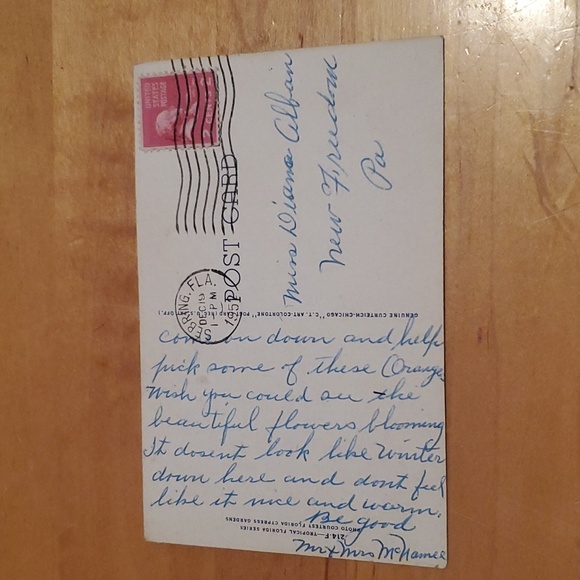 UNITED STATES POSTAGE
SEBRING, FLA.
DEC 19
1 - PM
195
POST CARD
Miss Diana Alban
New Freedom
Pa
GENUINE CURTEICH-CHICAGO "C.T. ART-COLORTONE" POST CARD (REG. U.S. PAT. OFF.)
come on down and help
pick some of these Oranges
Wish you could see the
beautiful flowers blooming
It dosent look like Winter
down here and dont feel
like it nice and warm.
Be good
Mr & Mrs McNamee
214-F—TROPICAL FLORIDA SERIES
PHOTO COURTESY FLORIDA CYPRESS GARDENS